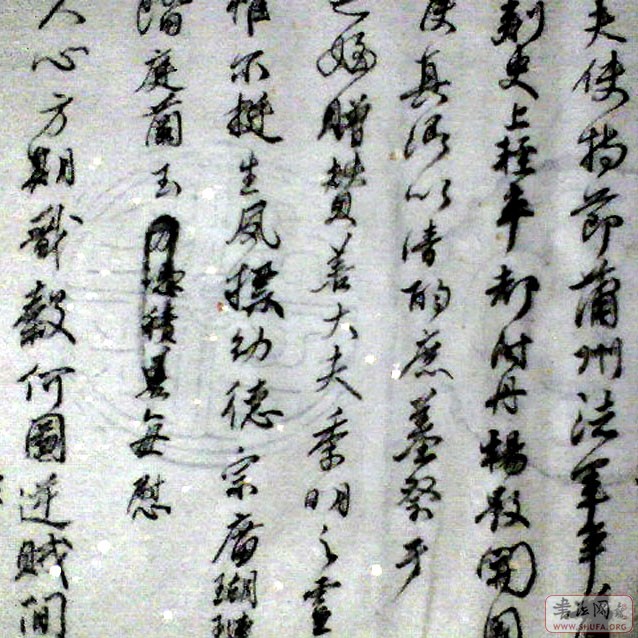 夫使持節蒲州諸軍事
刺史上輕車都尉丹楊縣開國
侯真卿以清酌庶羞祭于
亡姪贈贊善大夫季明之靈
惟爾挺生夙標幼德宗廟瑚璉
階庭蘭玉積善每慰
人心方期戩穀何圖逆賊間
书法网
WWW.SHUFA.ORG